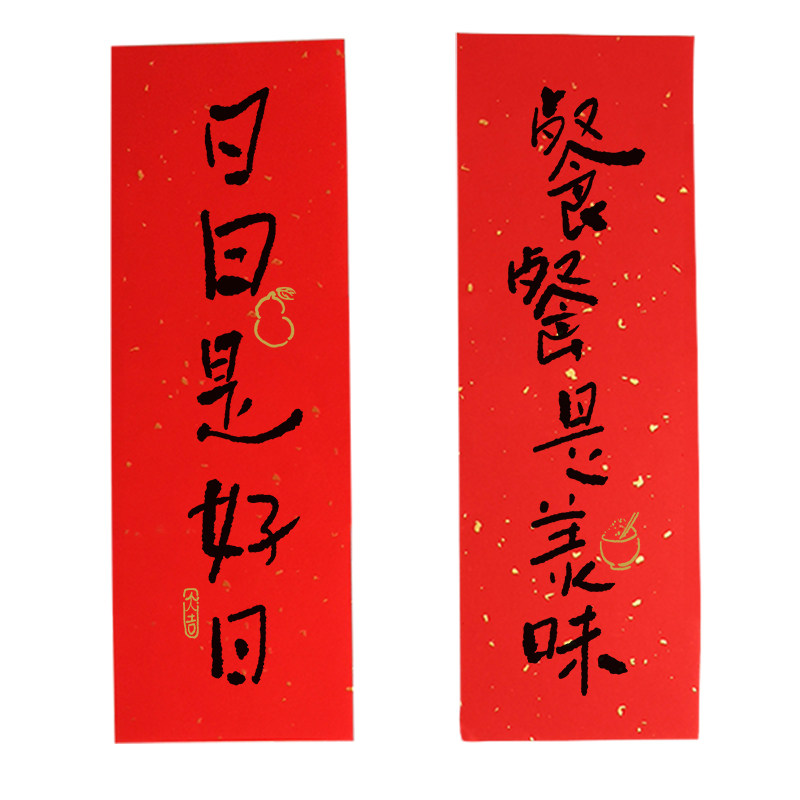 日日是好日
大吉
餐餐是美味